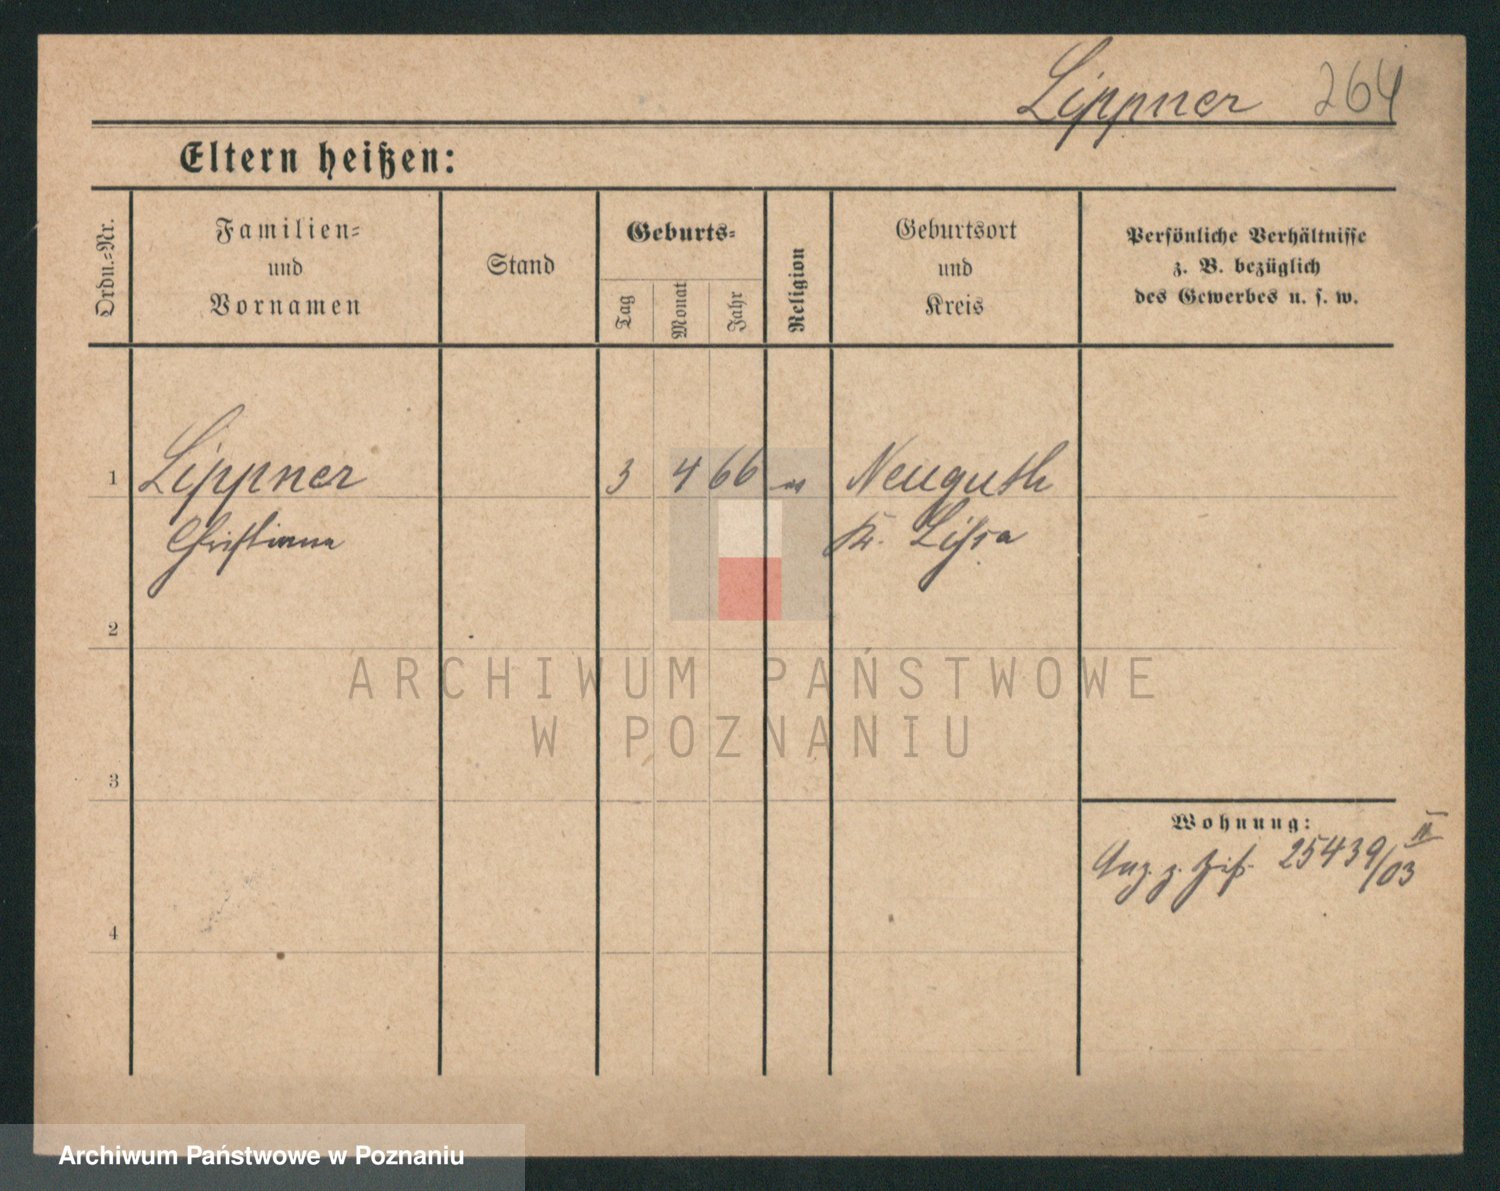 Lippner 264
Eltern heißen:
Ordn.-Nr.
Familien-
und
Vornamen
Stand
Geburts-
Tag
Monat
Jahr
Religion
Geburtsort
und
Kreis
Persönliche Verhältnisse
z. B. bezüglich
des Gewerbes u. s. w.
1 Lippner 3 4 66 Neuguth
Christiana Kr. Lissa
2
3
4
Wohnung:
25439/03 II
ARCHIWUM PAŃSTWOWE
W POZNANIU
Archiwum Państwowe w Poznaniu